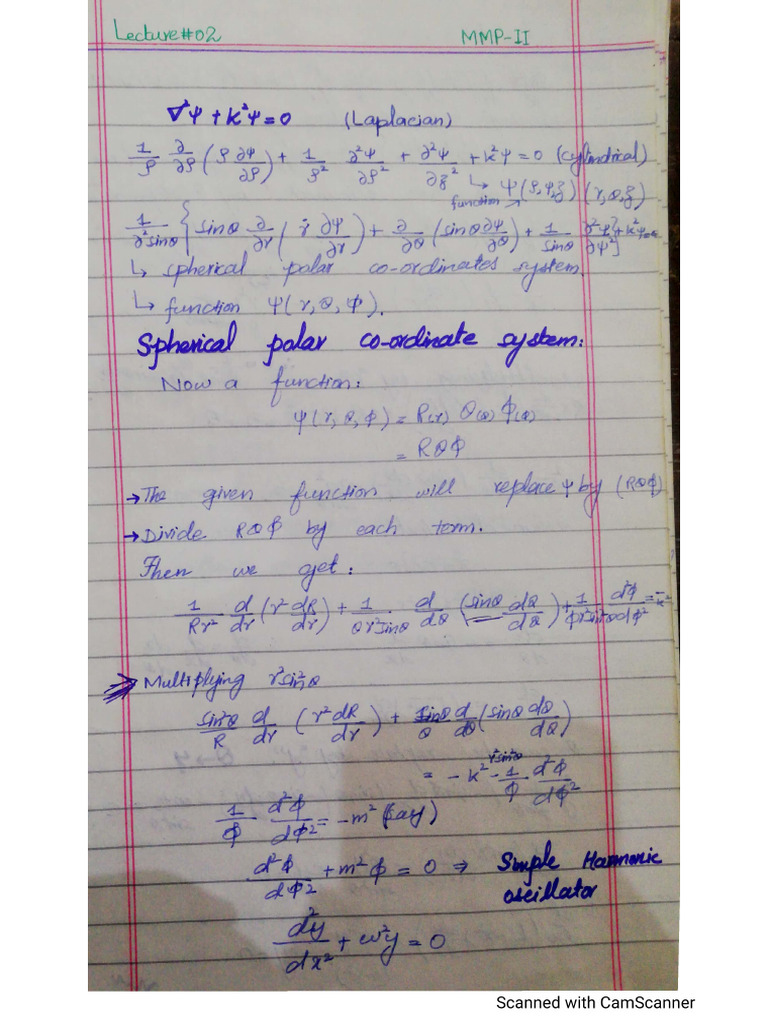 Lecture#02 MMP-II
∇²Ψ + K²Ψ = 0 (Laplacian)
1/ρ ∂/∂ρ (ρ ∂Ψ/∂ρ) + 1/ρ² ∂²Ψ/∂ρ² + ∂²Ψ/∂z² + K²Ψ = 0 (cylindrical)
↳ Ψ(ρ,φ,z) (r,θ,z)
function
1/∂²sinθ { sinθ ∂/∂r (r² ∂Ψ/∂r) + ∂/∂θ (sinθ ∂Ψ/∂θ) + 1/sinθ ∂²Ψ/∂Ψ² } + K²Ψ=0
↳ spherical polar co-ordinates system.
↳ function Ψ(r,θ,φ).
Spherical polar co-ordinate system:
Now a function:
Ψ(r,θ,φ) = R(r) Θ(θ) Φ(φ)
= RΘΦ
→ The given function will replace Ψ by (RΘΦ)
→ Divide RΘΦ by each term.
Then we get:
1/Rr² d/dr (r² dR/dr) + 1/Θr²sinθ · d/dθ (sinθ dΘ/dθ) + 1/Φr²sin²θ d²Φ/dφ² = -k²
⇒ Multiplying r²sin²θ
sin²θ/R d/dr (r² dR/dr) + sinθ/Θ d/dθ (sinθ dΘ/dθ)
= -k² r²sin²θ - 1/Φ · d²Φ/dΦ²
1/Φ · d²Φ/dΦ² = -m² (say)
d²Φ/dΦ² + m²Φ = 0 ⇒ Simple Harmonic
oscillator
d²y/dx² + ω²y = 0
Scanned with CamScanner